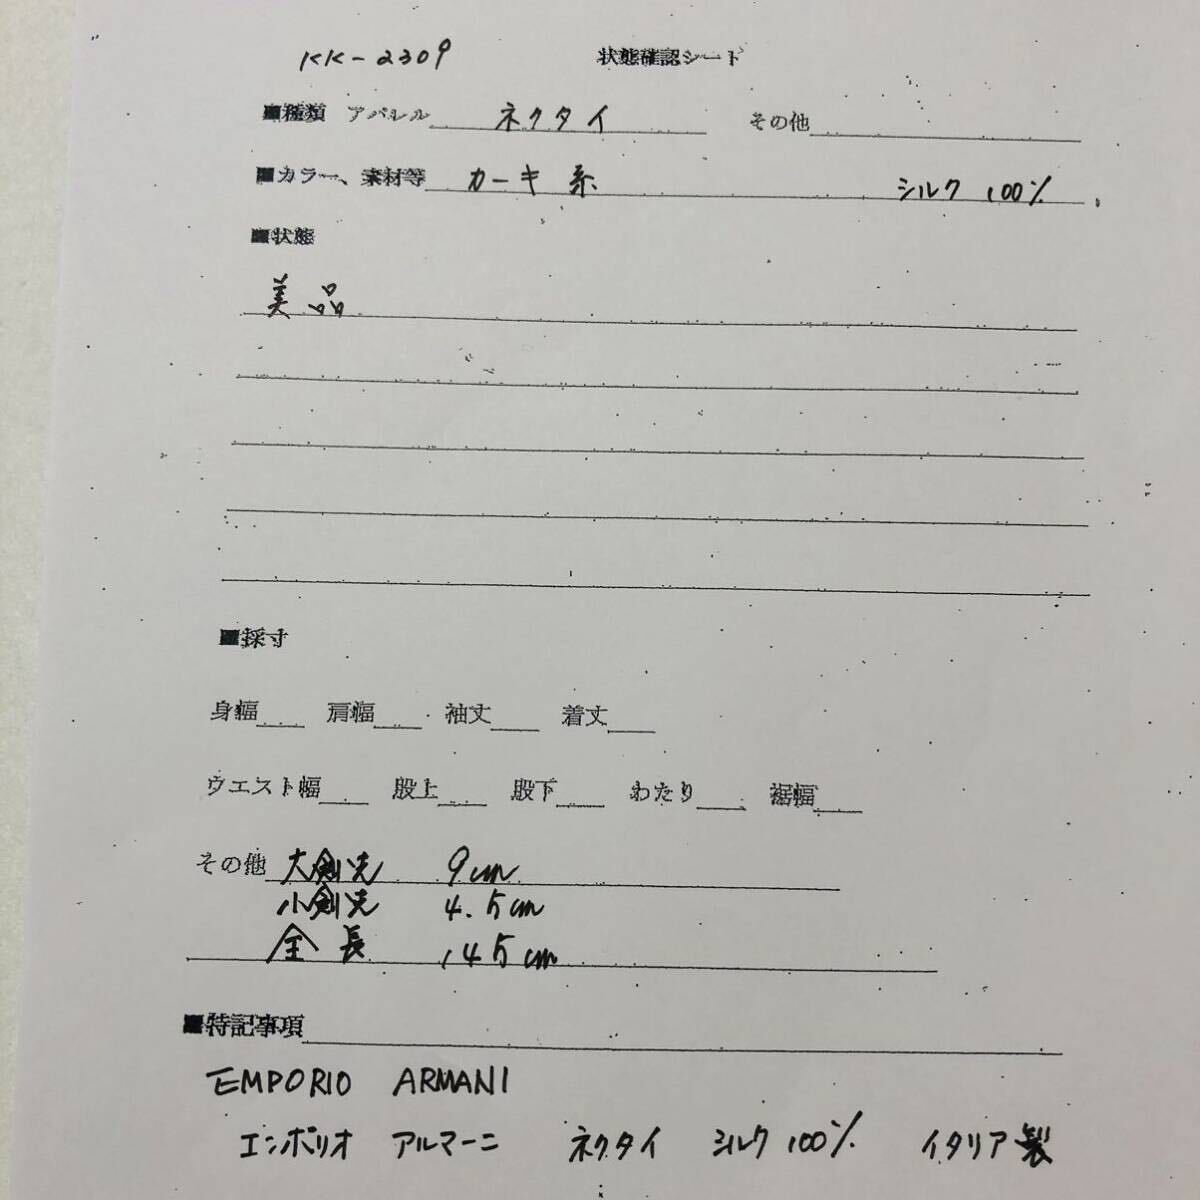 KK-2309 状態確認シート
■種類 アパレル ネクタイ その他
■カラー、素材等 カーキ系 シルク 100%
■状態
美品
■採寸
身幅 肩幅 袖丈 着丈
ウエスト幅 股上 股下 わたり 裾幅
その他 大剣先 9cm
小剣先 4.5cm
全長 145cm
■特記事項
EMPORIO ARMANI
エンポリオ アルマーニ ネクタイ シルク 100% イタリア製